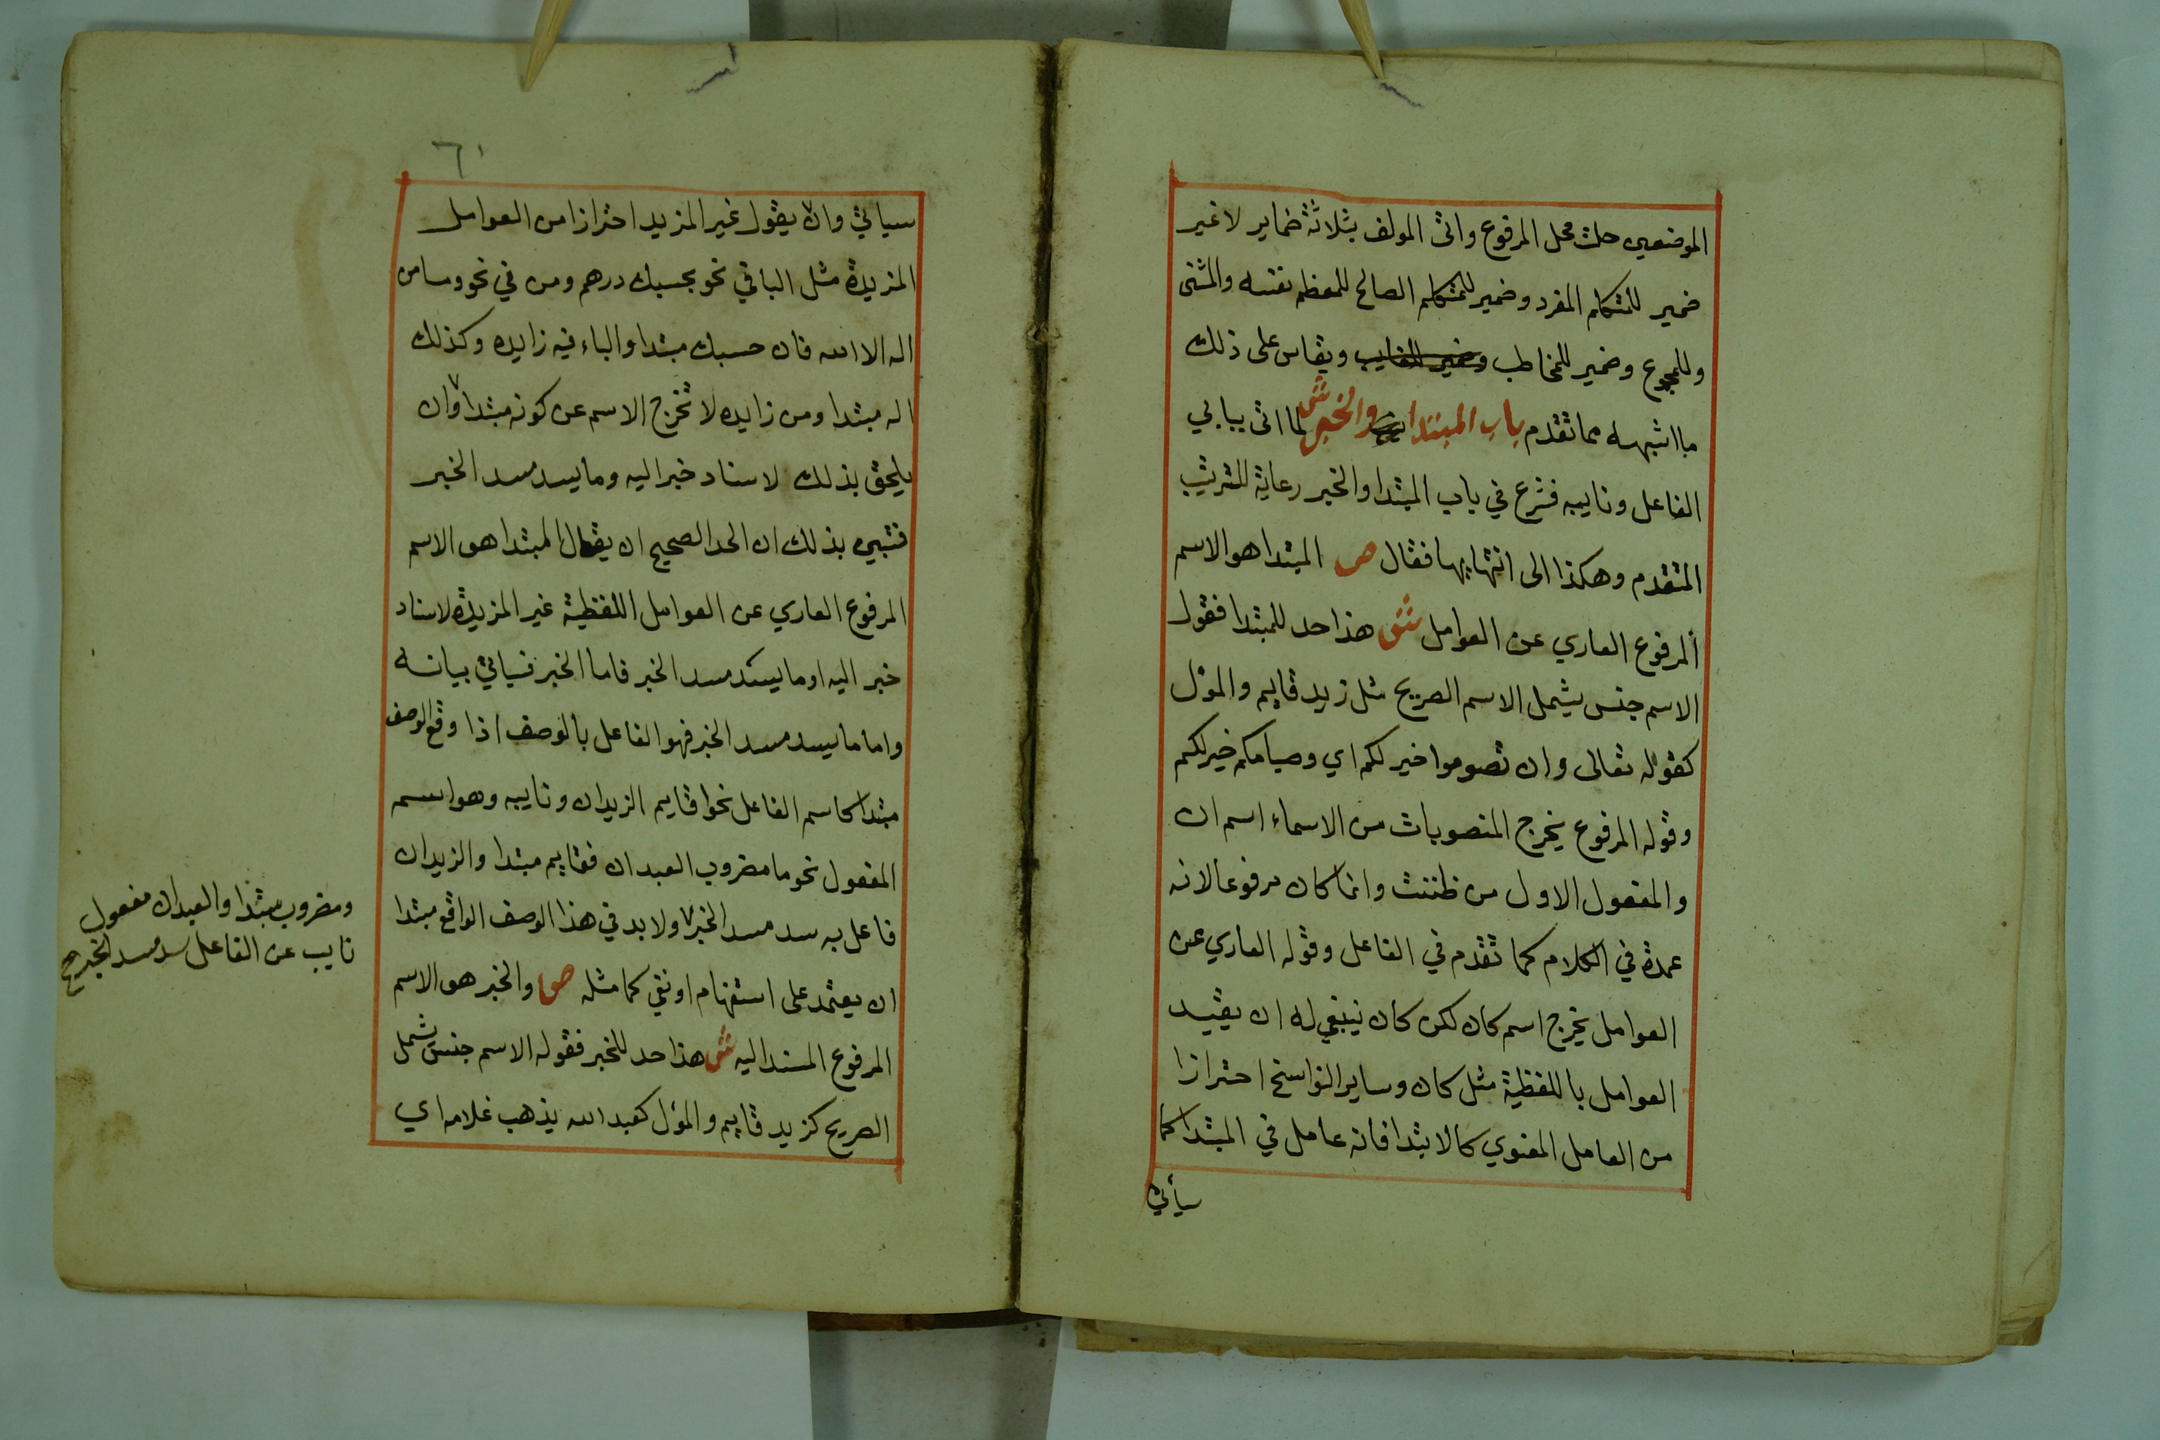 الموضعين حلت محل المرفوع واتى المولف بثلاثة ضماير لا غير
ضمير للمتكلم المفرد وضمير للمتكلم الصالح للمعظم نفسه والمثنى
وللمجموع وضمير للمخاطب وضمير للغايب ويقاس على ذلك
ما اشبهه مما تقدم باب المبتدا والخبر ش لما اتى ببابي
الفاعل ونايبه فشرع في باب المبتدا والخبر رعاية للترتيب
المتقدم وهكذا الى انتهايها فقال ص المبتدا هو الاسم
المرفوع العاري عن العوامل ش هذا حد للمبتدا فقول
الاسم جنس يشمل الاسم الصريح مثل زيد قايم والمؤل
كقوله تعالى وان تصوموا خير لكم اي وصيامكم خير لكم
وقوله المرفوع يخرج المنصوبات من الاسماء اسم ان
والمفعول الاول من ظننت وانما كان مرفوعا لانه
عمدة في الكلام كما تقدم في الفاعل وقوله العاري عن
العوامل يخرج اسم كان لكن كان ينبغي له ان يقيد
العوامل باللفظية مثل كان وساير النواسخ احترازا
من العامل المعنوي كالابتدا فانه عامل في المبتدا كما
سيأتي
٦١
سياتي وان يقول غير المزيد احترازا من العوامل
المزيدة مثل الباقي نحو بحسبك درهم ومن في نحو وما من
اله الا الله فان حسبك مبتدا والباء فيه زايده وكذلك
اله مبتدا ومن زايده لا تخرج الاسم عن كونه مبتدا وان
يلحق بذلك لاسناد خبر اليه وما يسد مسد الخبر
فتبين بذلك ان الحد الصحيح ان يقال المبتدا هو الاسم
المرفوع العاري عن العوامل اللفظية غير المزيدة لاسناد
خبر اليه او ما يسد مسد الخبر فاما الخبر فسياتي بيانه
واما ما يسد مسد الخبر فهو الفاعل بالوصف اذا وقع الوصف
مبتدا كاسم الفاعل نحو اقايم الزيدان ونايبه وهو اسم
المفعول نحو ما مضروب العبدان فقايم مبتدا والزيدان
فاعل به سد مسد الخبر ولا بد في هذا الوصف الواقع مبتدا
ان يعتمد على استفهام او نفي كما مثله ص والخبر هو الاسم
المرفوع المسند اليه ش هذا حد للخبر فقوله الاسم جنس يشمل
الصريح كزيد قايم والمؤل كعبد الله يذهب غلامه اي
ومضروب مبتدا والعبدان مفعول
نايب عن الفاعل سد مسد الخبر صح